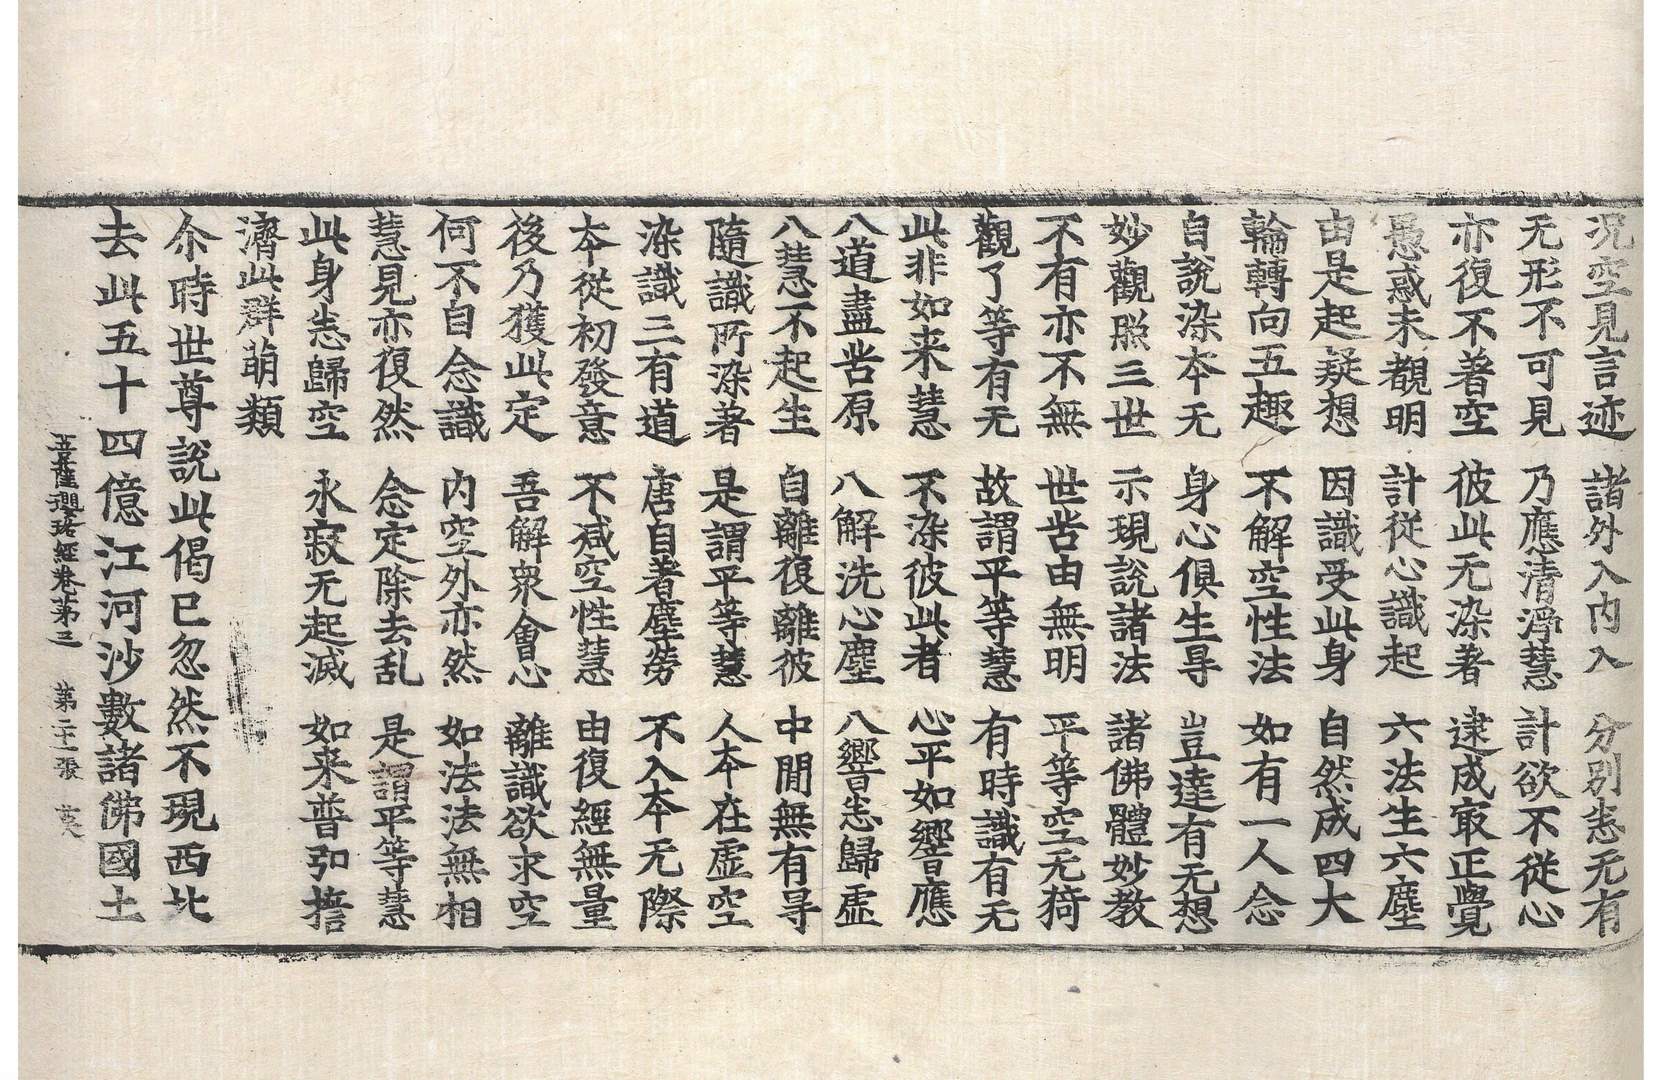 況空見言迹　諸外入內入　分別悉无有
无形不可見　乃應清淨慧　計欲不從心
亦復不著空　彼此无染著　逮成㝡正覺
愚惑未覩明　計從心識起　六法生六塵
由是起疑想　因識受此身　自然成四大
輪轉向五趣　不解空性法　如有一人念
自說染本无　身心俱生㝵　豈達有无想
妙觀照三世　示現說諸法　諸佛體妙教
不有亦不無　世苦由無明　平等空无猗
觀了等有无　故謂平等慧　有時識有无
此非如来慧　不染彼此者　心平如響應
八道盡苦原　八解洗心塵　八響悉歸虛
八慧不起生　自離復離彼　中閒無有㝵
隨識所染著　是謂平等慧　人本在虛空
染識三有道　唐自著塵勞　不入本无際
本從初發意　不減空性慧　由復經無量
後乃獲此定　吾解衆會心　離識欲求空
何不自念識　內空外亦然　如法法無相
慧見亦復然　念定除去乱　是謂平等慧
此身悉歸空　永寂无起滅　如来普弘擔
濟此群萌類
尒時世尊說此偈已忽然不現西北
去此五十四億江河沙數諸佛國土
菩薩瓔珞經卷第三　第二十一張　莫